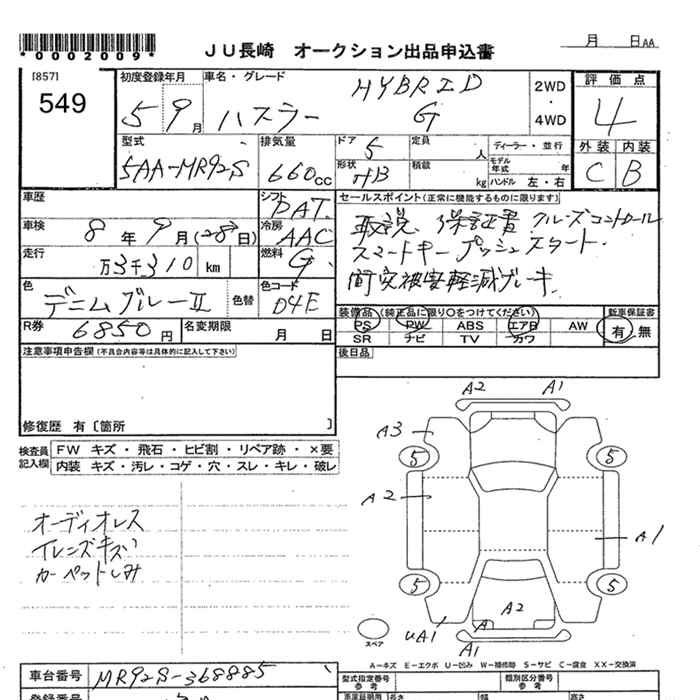 *0002009*
JU長崎 オークション出品申込書
月 日AA
[857]
549
初度登録年月
5 9月
車名・グレード
HYBRID
ハスラー G
2WD
・
4WD
評価点
4
外装 内装
C B
型式
5AA-MR92S
排気量
660cc
ドア
5
形状
HB
定員
人
積載
kg
ディーラー・並行
モデル年式 年
ハンドル 左・右
車歴
シフト
PAT
車検
8年9月(28日)
冷房
AAC
走行
万3千310 km
燃料
G
色
デニムブルーⅡ
色替
色コード
D4E
R券
6850円
名変期限
月 日
セールスポイント(正常に機能するものに限ります)
取説 保証書 クルーズコントロール
スマートキー プッシュスタート
衝突被害軽減ブレーキ
装備品(純正品に限り〇をつけてください)
PS PW ABS エアB AW
SR ナビ TV カワ
新車保証書
有・無
後日品
注意事項申告欄(不具合内容等は具体的に記入して下さい)
修復歴 有〔箇所 〕
検査員記入欄
FW キズ・飛石・ヒビ割・リペア跡・×要
内装 キズ・汚レ・コゲ・穴・スレ・キレ・破レ
オーディオレス
カーペットしみ
A2 A1
A3
5 5
A2
A1
5 5
A2
A
UA1
A1
スペア
A-キズ E-エクボ U-凹み W-補修跡 S-サビ C-腐食 XX-交換済
車台番号
MR92S-368885
型式指定番号
参考
類別区分番号
参考
長さ 幅 高さ